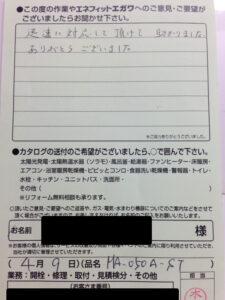 ●この度の作業やエネフィットエガワへのご意見・ご要望が
ございましたらお聞かせ下さい。
迅速に対応して頂けて 助かりました
ありがとうございました
※ご協力ありがとうございました。
●カタログの送付のご希望がございましたら、○で囲んで下さい。
太陽光発電・太陽熱温水器（ソラモ）・風呂釜・給湯器・ファンヒーター・床暖房・
エアコン・浴室暖房乾燥機・ピピッとコンロ・食器洗い乾燥機・警報器・トイレ・
水栓・キッチン・ユニットバス・洗面所・
その他（
※リフォーム無料相談も承ります。
お名前
様
（4月9日）品名（
業務：開栓・修理・取付・見積検分・その他
担当